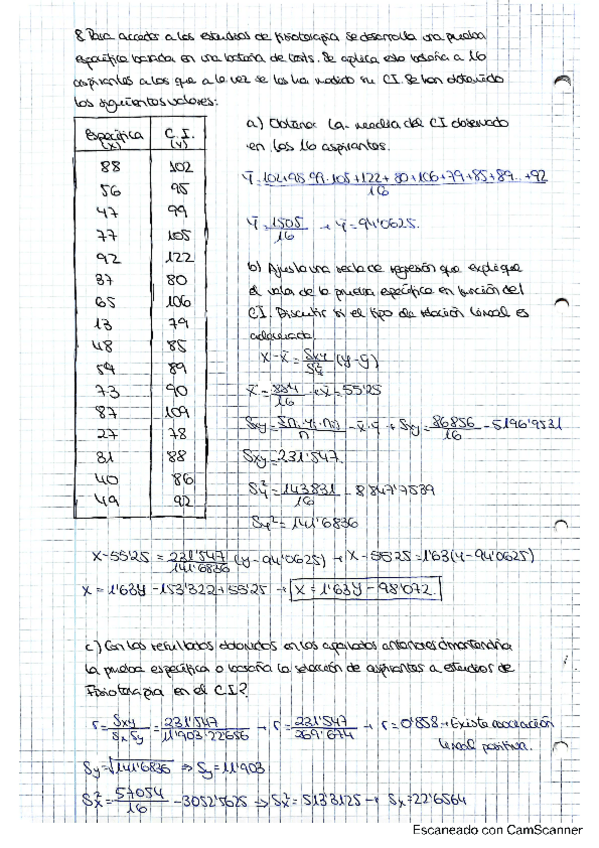 8. Para acceder a los estudios de Fisioterapia se desarrolla una prueba
específica basada en una batería de tests. Se aplica esta batería a 16
aspirantes a los que a la vez se les ha medido su CI. Se han obtenido
los siguientes valores:
Específica (x) C.I. (y)
88 102
56 95
47 99
77 105
92 122
37 80
65 106
13 79
48 85
54 89
73 90
87 109
27 78
81 88
40 86
49 92
a) Obtener la media del CI observado
en los 16 aspirantes.
Ȳ = 102+95+99+105+122+80+106+79+85+89...+92 / 16
Ȳ = 1505/16 → Ȳ = 94'0625.
b) Ajusta una recta de regresión que explique
el valor de la prueba específica en función del
CI. Discutir si el tipo de relación lineal es
adecuada.
X - x̄ = Sxy/Sy² (y - ȳ)
x̄ = 884/16 → x̄ = 55'25
Sxy = - x̄·ȳ → Sxy = 86856/16 - 5196'9531
Sxy = 231'547
Sy² = 143831/16 - 8847'7539
Sy² = 141'6836
X - 55'25 = 231'547/141'6836 (y - 94'0625) → X - 55'25 = 1'63(y - 94'0625)
X = 1'63y - 153'322 + 55'25 → X = 1'63y - 98'072.
c) Con los resultados obtenidos en los apartados anteriores
la prueba específica o batería la selección de aspirantes a estudios de
Fisioterapia en el CI?
r = Sxy/Sx Sy = 231'547/11'903·22'656 → r = 231'547/269'674 → r = 0'858 → Existe asociación
lineal positiva.
Sy = √141'6836 ⇒ Sy = 11'903
Sx² = 57054/16 - 3052'5625 ⇒ Sx² = 513'3125 → Sx = 22'6564
Escaneado con CamScanner